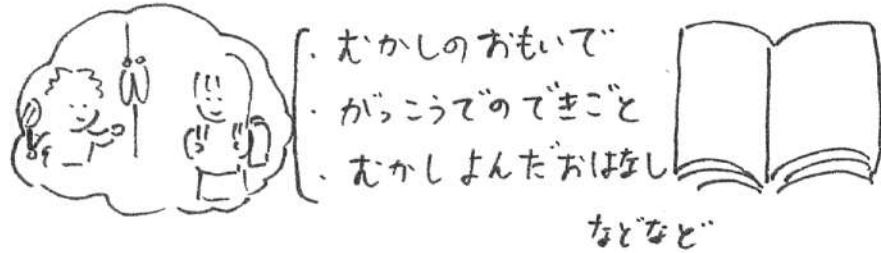 ・むかしのおもいで
・がっこうでのできごと
・むかしよんだおはなし
などなど